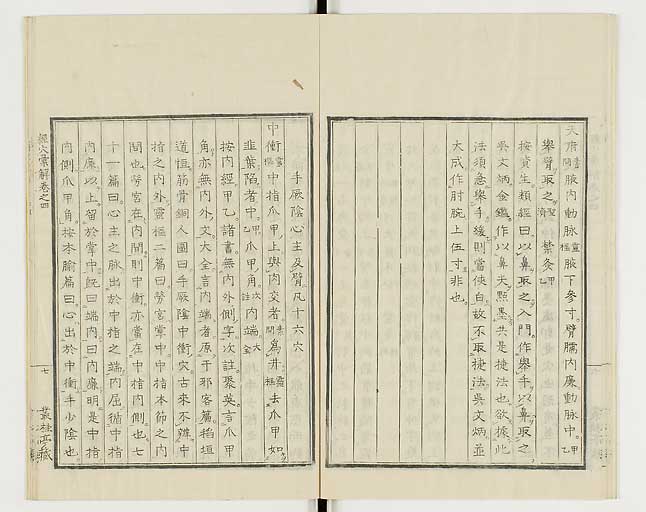 天府素問腋內動脉靈樞腋下參寸臂臑內廉動脉中甲乙
舉臂取之聖濟禁灸甲乙
按資生類經曰以鼻取之入門作舉手以鼻取之
吳文炳金鑑作以鼻尖點墨共是捷法也欲據此
法須急舉手緩則當俠白故不取捷法吳文炳並
大成作肘腕上伍寸非也
手厥陰心主及臂凡十六穴
中衝靈樞中指爪甲上與肉交者素問為井靈樞去爪甲如
韭葉陷者中甲乙爪甲角次註內端大全
按內經甲乙諸書無內外側字次註聚英言爪甲
角亦無內外文大全言內端者原于邪客篇滔垣
道恒筋骨銅人圖曰手厥陰中衝穴古來不辨中
指之內外靈樞二篇曰勞宮掌中中指本節之內
間也勞宮在內間則中衝亦當在中指內側也七
十一篇曰心主之脉出於中指之端內屈循中指
內廉以上留於掌中既曰端內曰內廉明是中指
內側爪甲角按本腧篇曰心出於中衝手少陰也
經穴彙解卷之四
七
叢桂亭藏